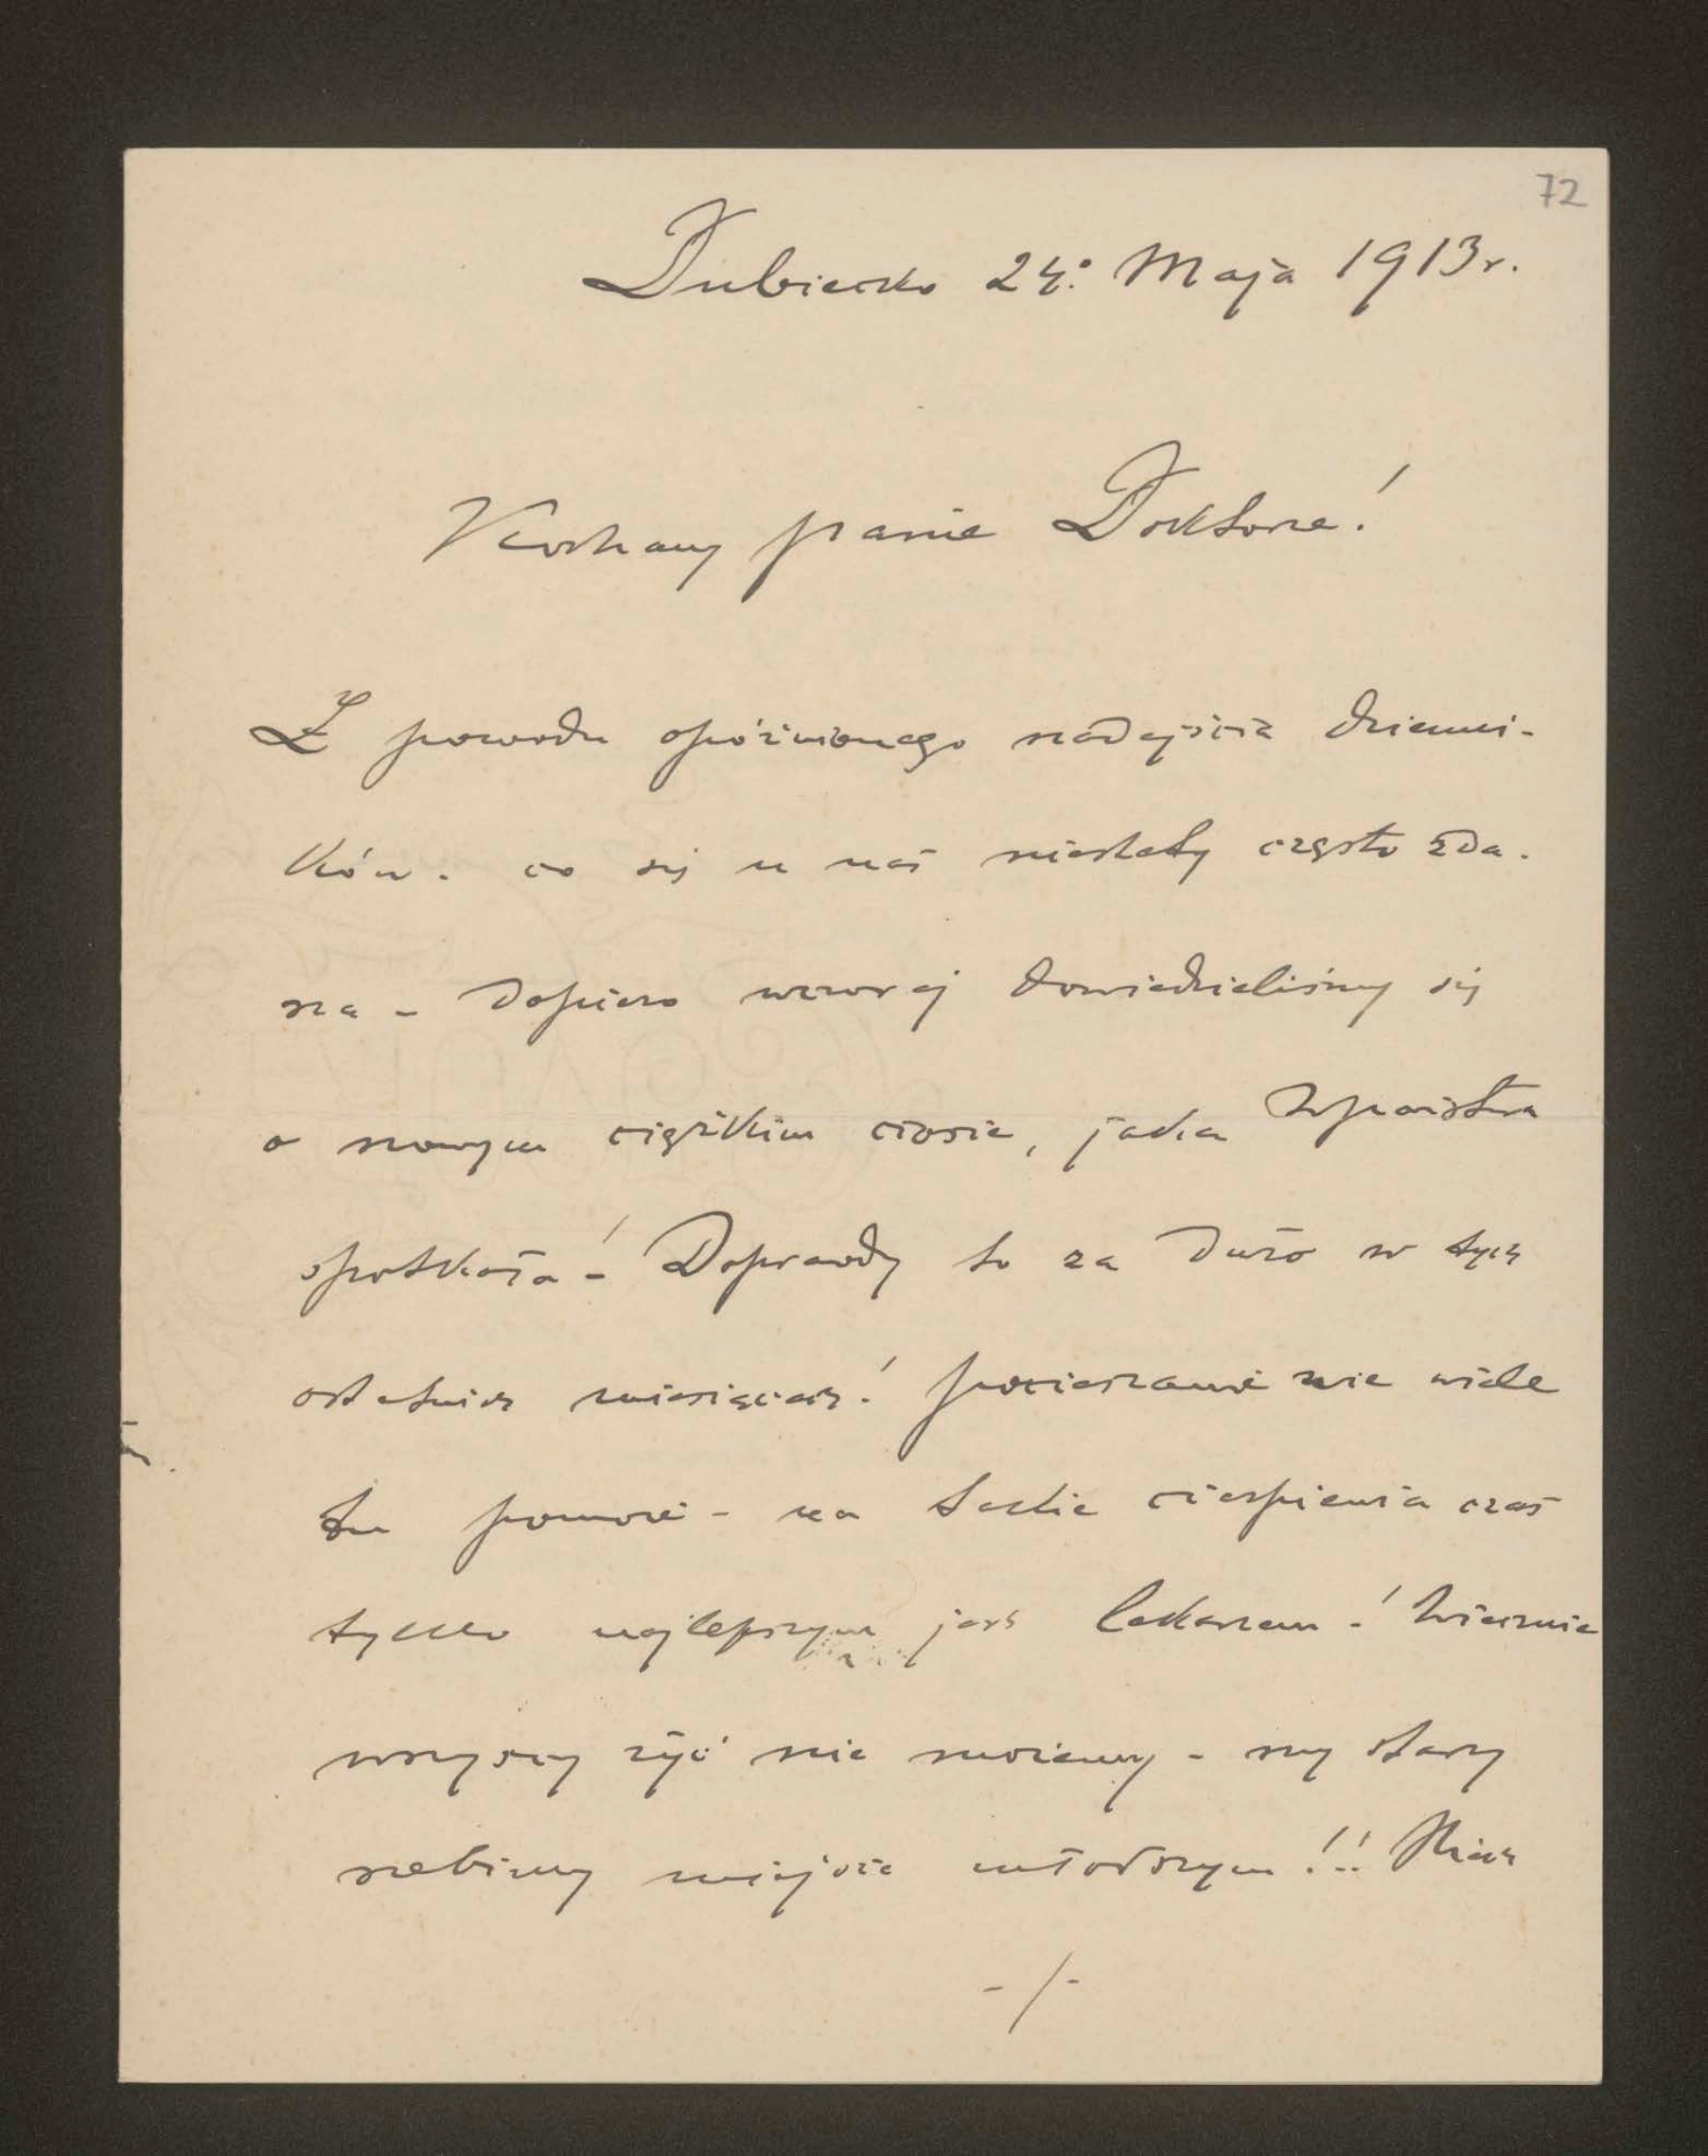 72
Dubiecko 24º Maja 1913 r.
Kochany panie Doktorze!
Z powodu opóźnionego nadejścia dzienni-
ków - co się u nas niestety często zda-
rza - dopiero wczoraj dowiedzieliśmy się
o nowym ciężkim ciosie, jaki Wpaństwa
spotkał -! Doprawdy to za dużo w tych
ostatnich miesiącach! pocieszanie nie wiele
tu pomoże - na takie cierpienia czas
tylko najlepszym jest lekarzem -! Wiecznie
wszyscy żyć nie możemy - my starzy
robimy miejsce młodszym!!! Niech
-/-